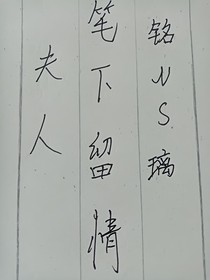 铭NS璃
笔下留情
夫人